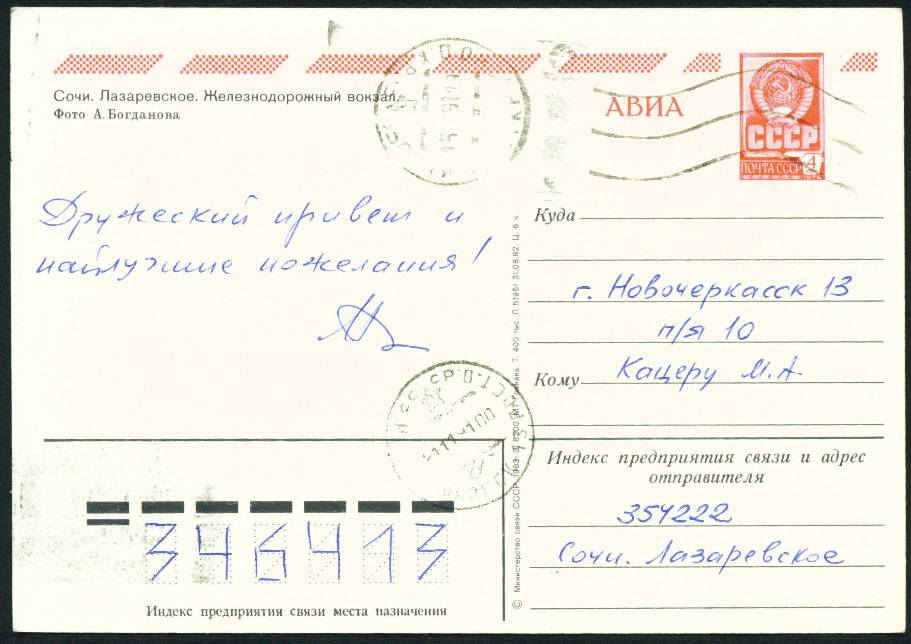 Сочи. Лазаревское. Железнодорожный вокзал.
Фото А. Богданова
АВИА
СССР
ПОЧТА СССР 4
Дружеский привет и
наилучшие пожелания!
Куда
г. Новочеркасск 13
п/я 10
Кому Кацеру М.А.
Индекс предприятия связи и адрес
отправителя
354222
Сочи. Лазаревское
346413
Индекс предприятия связи места назначения
© Министерство связи СССР. 1983.